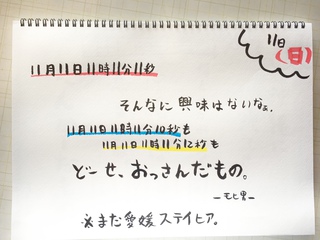 11日
(日)
11月11日11時11分11秒
そんなに興味はないなぁ。
11月11日11時11分10秒も
11月11日11時11分12秒も
どーせ、おっさんだもの。
ーモヒ男ー
※まだ愛媛ステイヒア。